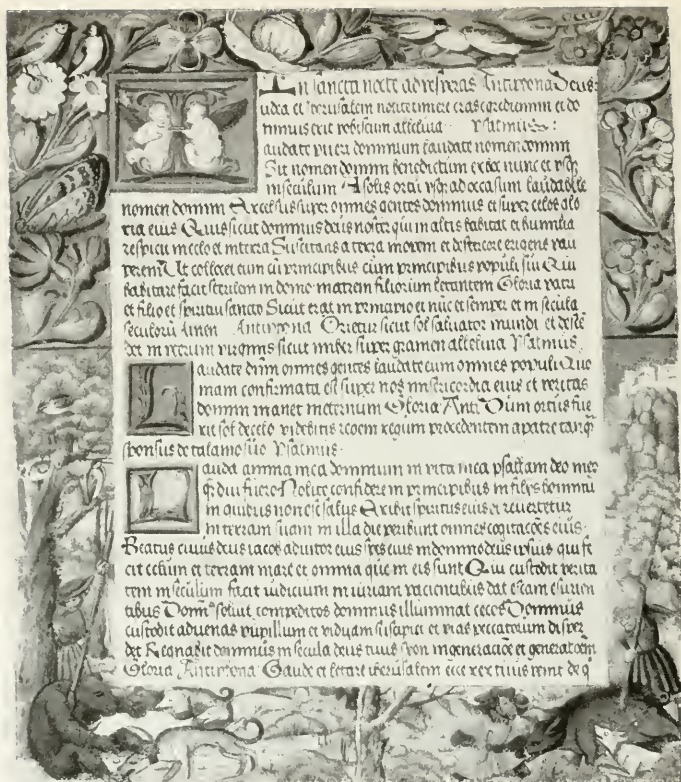 In sancta nocte ad vesperas Antiphona Deus
iudea et iherusalem nolite timere cras egrediemini et do
minus erit vobiscum alleluia Psalmus
audate pueri dominum laudate nomen domini
Sit nomen domini benedictum ex hoc nunc et vsq
in seculum A solis ortu vsq ad occasum laudabile
nomen domini Excelsus super omnes gentes dominus et super celos glo
ria eius Quis sicut dominus deus noster qui in altis habitat et humilia
respicit in celo et in terra Suscitans a terra inopem et de stercore erigens pau
perem Ut collocet eum cū principibus cum principibus populi sui Qui
habitare facit sterilem in domo matrem filiorum letantem Gloria patri
et filio et spiritui sancto Sicut erat in principio et nūc et semper et in secula
seculorū Amen Antiphona Orietur sicut sol saluator mundi et descē
det in vterum virginis sicut imber super gramen alleluia Psalmus
Laudate dnm omnes gentes laudate eum omnes populi Quo
niam confirmata est super nos misericordia eius et veritas
domini manet in eternum Gloria Anti Dum ortus fue
rit sol de celo videbitis regem regum procedentem a patre tanq
sponsus de talamo suo Psalmus
Lauda anima mea dominum in vita mea psallam deo meo
q̄ diu fuero Nolite confidere in principibus in filijs hominū
in quibus non est salus Exibit spiritus eius et reuertetur
in terram suam in illa die peribunt omnes cogitacōes eius
Beatus cuius deus iacob adiutor eius spes eius in domino deo ipsius qui fe
cit celum et terram mare et omnia que in eis sunt Qui custodit verita
tem in seculum facit iudicium in iuriam pacientibus dat escam esurien
tibus Domin⁹ soluit compeditos dominus illuminat cecos Dominus
custodit aduenas pupillum et viduam suscipiet et vias peccatorum disper
det Regnabit dominus in secula deus tuus syon in generacione et generacōem
Gloria Antiphona Gaude et letare iherusalem ecce rex tuus venit de q̄